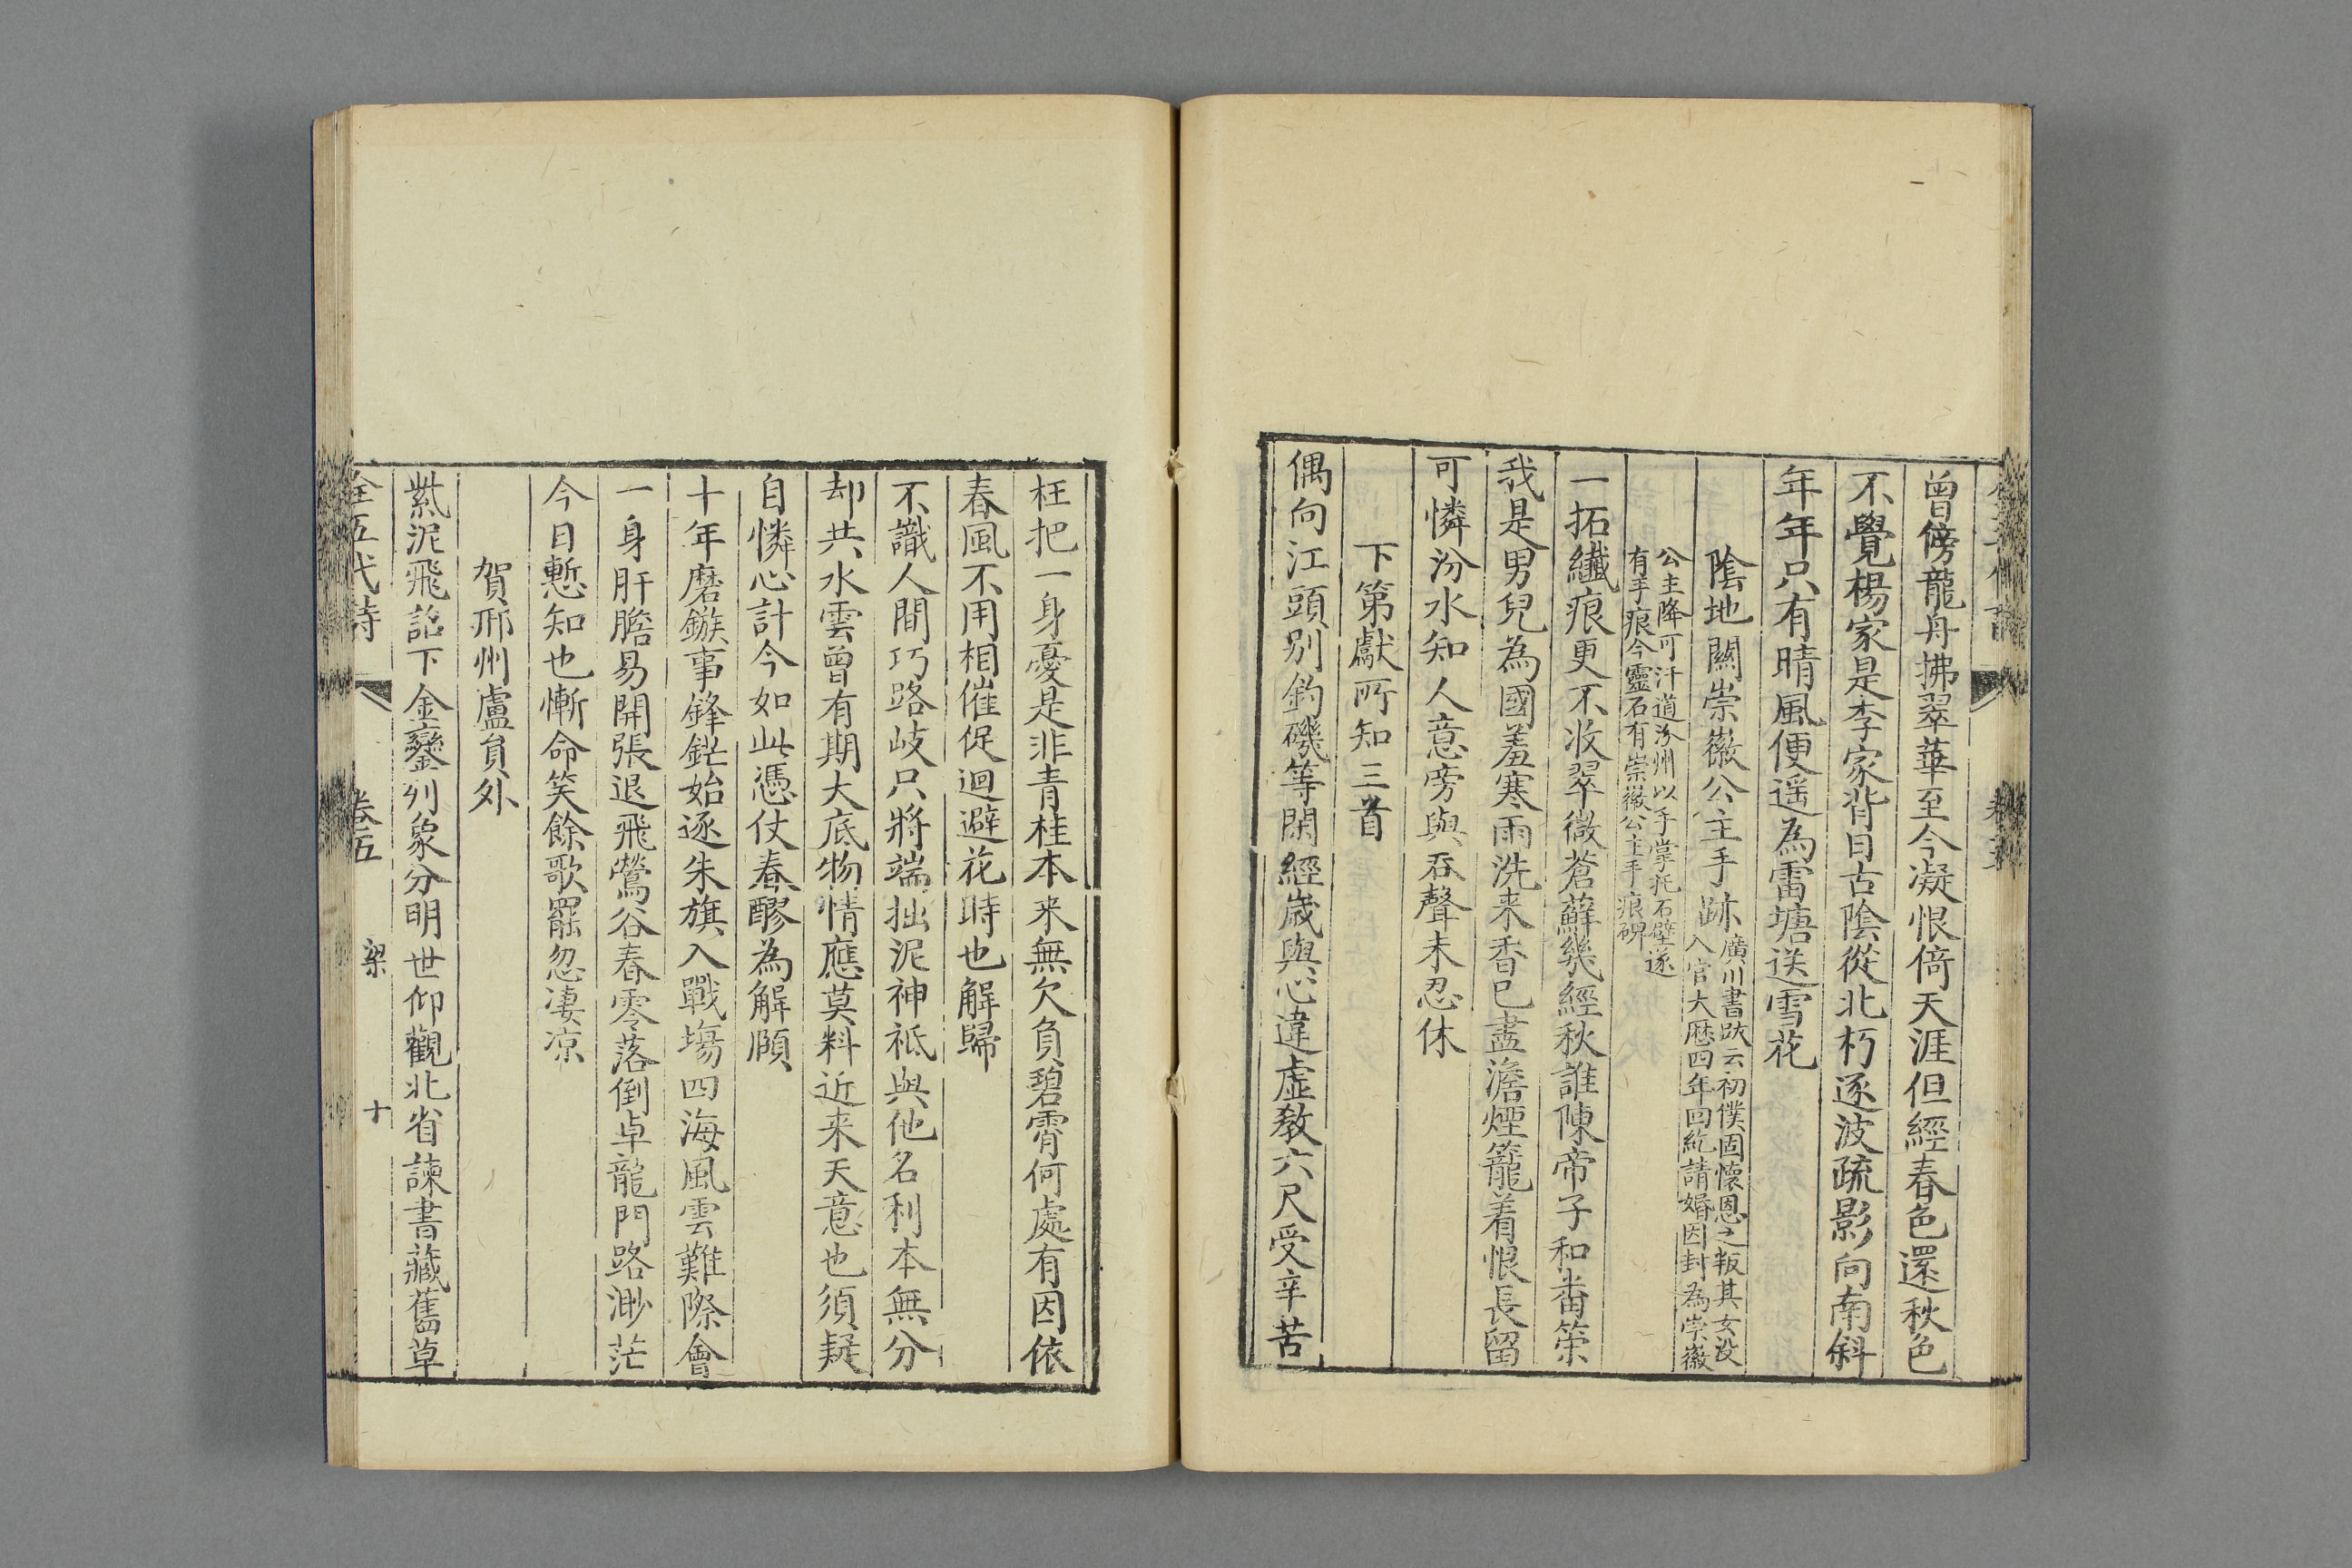 曾傍龍舟拂翠華至今凝恨倚天涯但經春色還秋色
不覺楊家是李家背日古陰從北朽逐波疏影向南斜
年年只有晴風便遥為雷塘送雪花
陰地關崇徽公主手跡
廣川書跋云初僕固懷恩之叛其女没
入官大厯四年回紇請婚因封為崇徽
公主降可汗道汾州以手掌托石壁遂
有手痕今靈石有崇徽公主手痕碑
一拓纖痕更不收翠微蒼蘚幾經秋誰陳帝子和番策
我是男兒為國羞寒雨洗来香已盡澹煙籠着恨長留
可憐汾水知人意旁與吞聲未忍休
下第獻所知三首
偶向江頭别釣磯等閑經歲與心違虚教六尺受辛苦
枉把一身憂是非青桂本来無欠負碧霄何處有因依
春風不用相催促迴避花時也解歸
不識人間巧路岐只將端拙泥神祇與他名利本無分
却共水雲曾有期大底物情應莫料近来天意也須疑
自憐心計今如此憑仗春醪為解頤
十年磨鏃事鋒鋩始逐朱旗入戰塲四海風雲難際會
一身肝膽易開張退飛鶯谷春零落倒卓龍門路渺茫
今日慙知也慚命笑餘歌罷忽凄凉
賀邢州盧員外
紫泥飛詔下金鑾列象分明世仰觀北省諫書藏舊草
全五代詩 卷五 梁 十